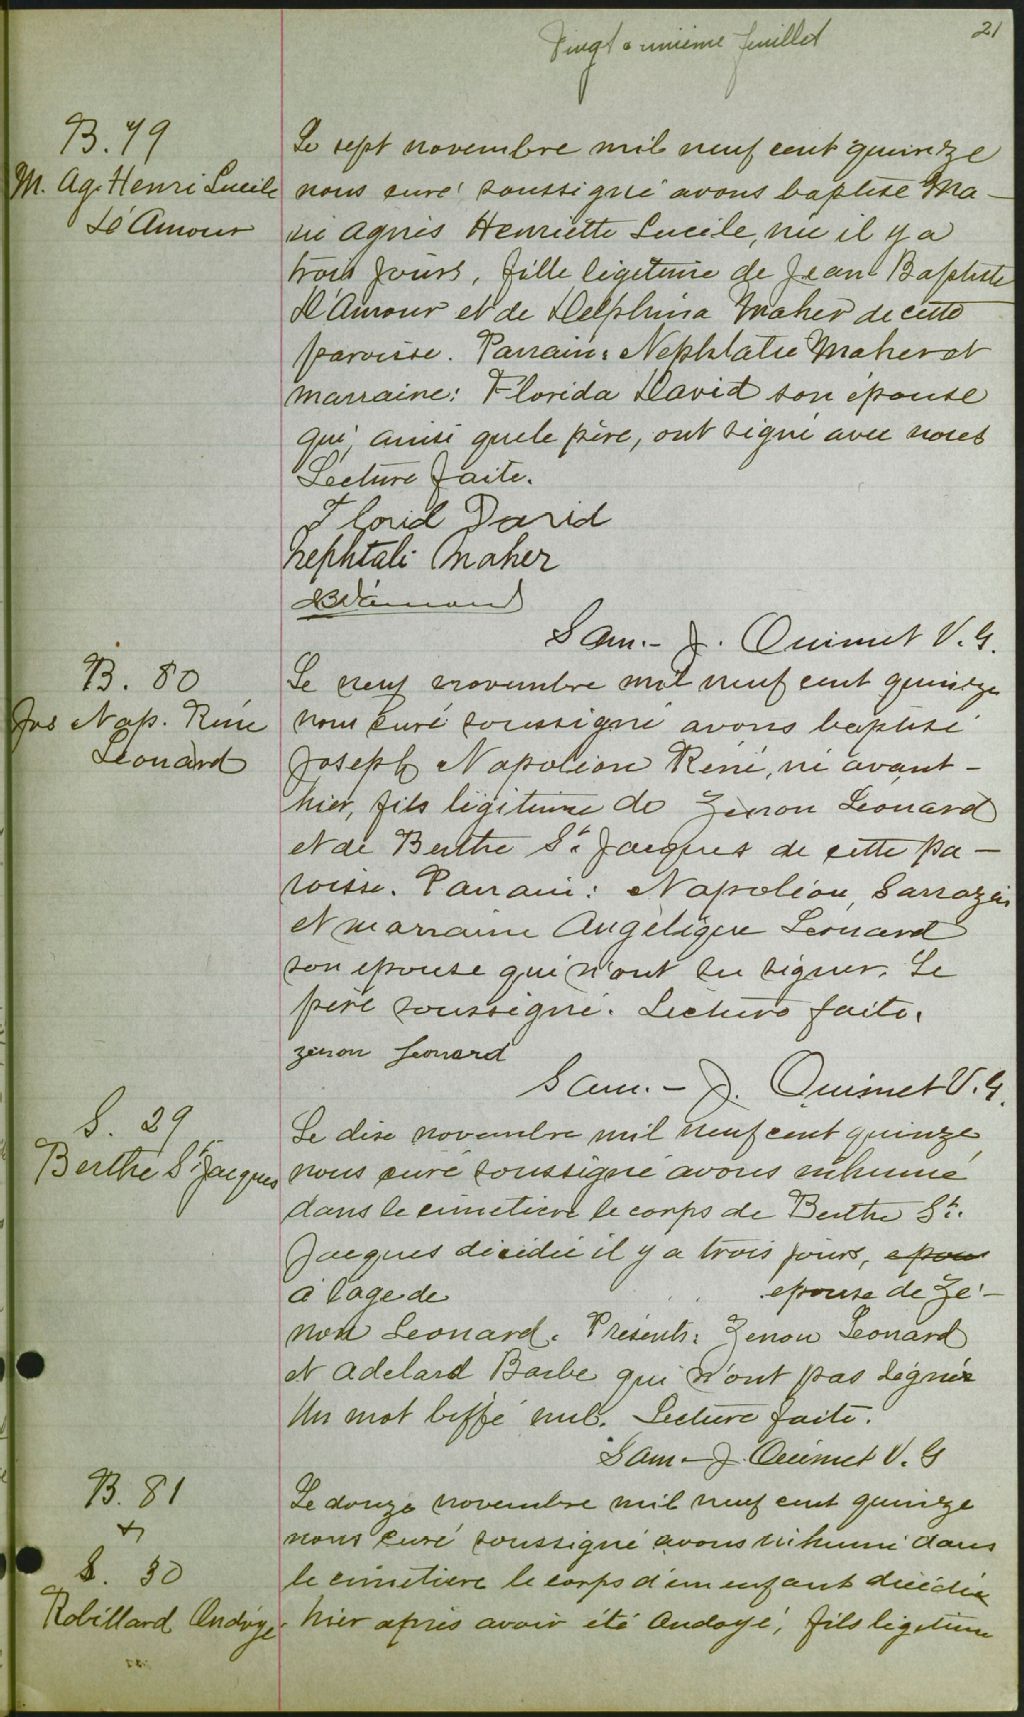 Vingt-unième feuillet
21
B. 79
M. Ag. Henri Lucile
D'Amour
Le sept novembre mil neuf cent quinze
nous curé soussigné avons baptisé Ma-
rie Agnès Henriette Lucile, née il y a
trois jours, fille légitime de Jean-Baptiste
D'Amour et de Delphina Maher de cette
paroisse. Parrain: Nephtalie Maher et
marraine: Florida David son épouse
qui, ainsi que le père, ont signé avec nous
Lecture faite.
Florid David
Nephtali Maher
JB D'amour
Sam.-J. Ouimet V.G.
B. 80
Jos Nap. Réné
Léonard
Le neuf novembre mil neuf cent quinze
nous curé soussigné avons baptisé
Joseph Napoléon Réné, né avant-
hier, fils légitime de Zénon Léonard
et de Berthe St. Jacques de cette pa-
roisse. Parrain: Napoléon Sarrazin
et marraine Angélique Léonard
son épouse qui n'ont su signer. Le
père soussigné. Lecture faite.
zenon Leonard
Sam.-J. Ouimet V.G.
S. 29
Berthe St. Jacques
Le dix novembre mil neuf cent quinze
nous curé soussigné avons inhumé
dans le cimetière le corps de Berthe St.
Jacques décédée il y a trois jours, epous
à l'age de epouse de Zé-
non Léonard. Présents: Zenon Léonard
et Adelard Barbe qui n'ont pas signé
Un mot biffé nul. Lecture faite.
Sam-J. Ouimet V.G
B. 81
+
S. 30
Robillard Ondoyé
Le douze novembre mil neuf cent quinze
nous curé soussigné avons inhumé dans
le cimetière le corps d'un enfant décédé
hier après avoir été ondoyé, fils légitime